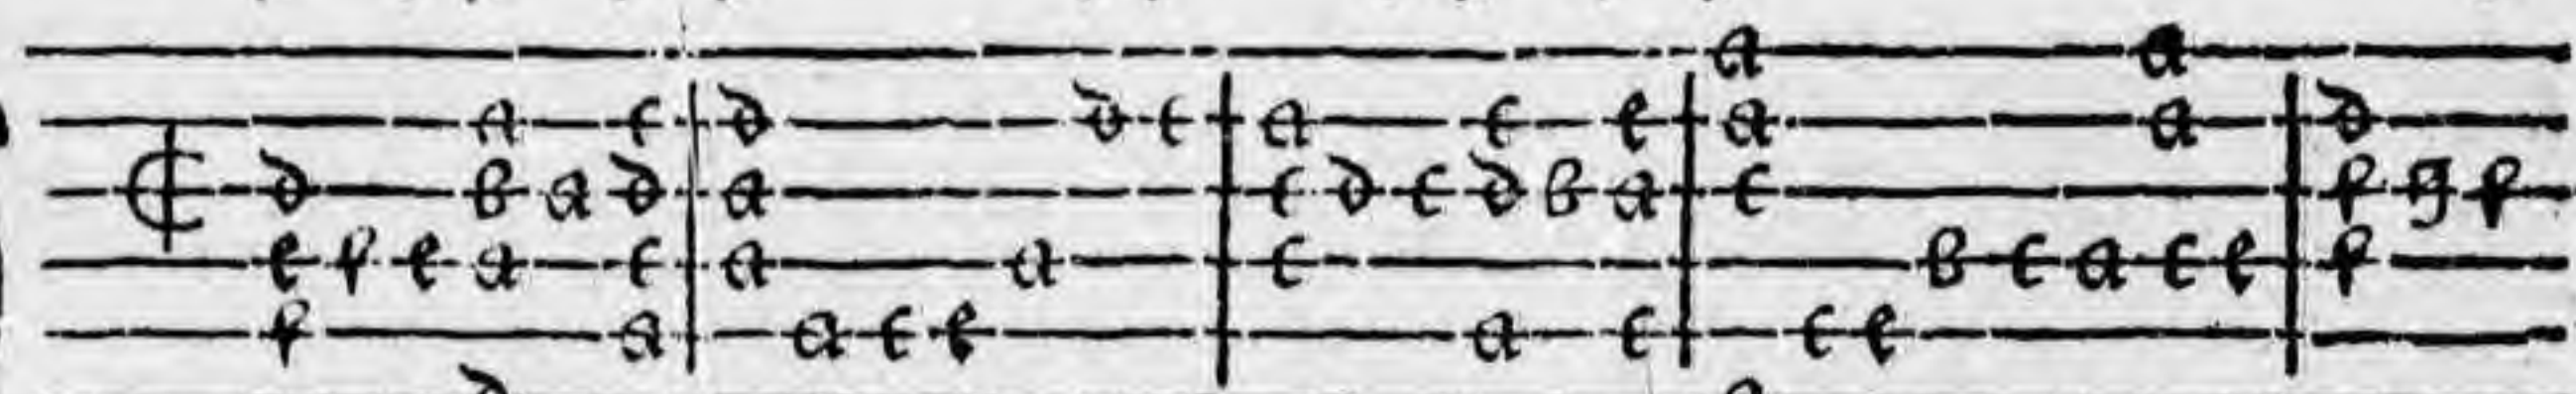 a a
a c d d c a c e a a d
d b a d a c d c d b a c f g f
e f e a c a a c b c a c e f
f a a c e a c c e